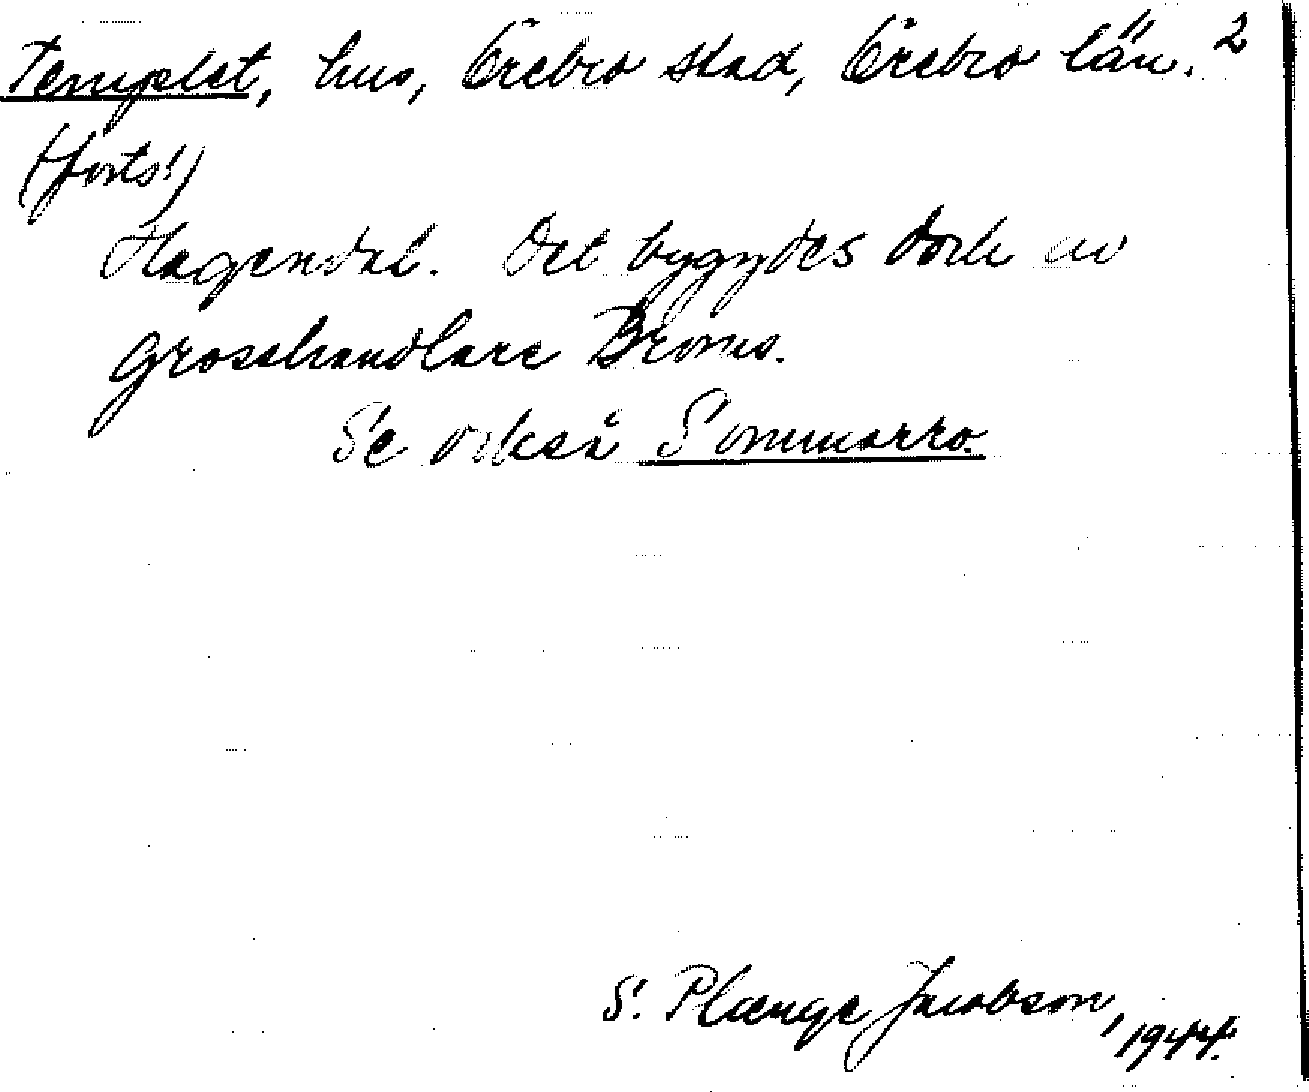 Templet, hus, Örebro stad, Örebro län. 2
(forts.)
Hagendal. Det byggdes dock av
grosshandlare Broms.
Se också Sommarro.
S. Plænge Jacobson,
1944.